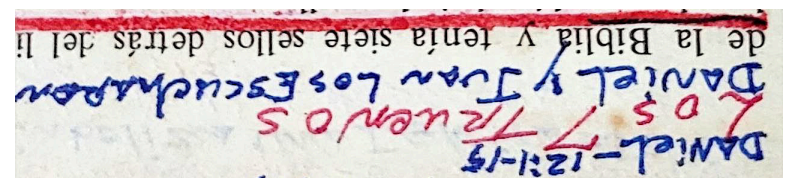 DANIEL-12:1-15
LOS 7 TRUENOS
DANIEL Y JUAN LOS ESCUCHARON
de la Biblia y tenía siete sellos detrás del li